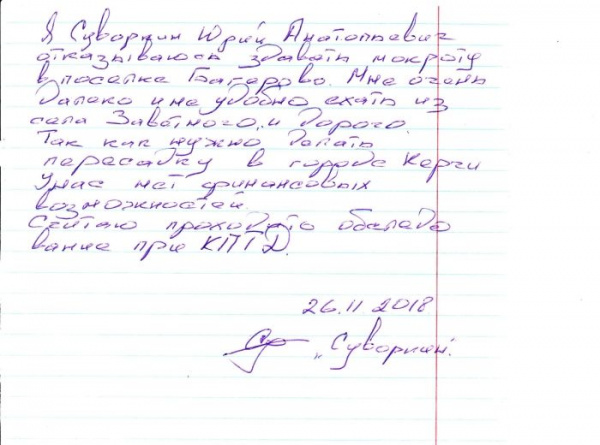 Я Суворкин Юрий Анатольевич
отказываюсь здавать мокроту
в поселке Багерово. Мне очень
далеко и не удобно ехать из
села Заветного, и дорого.
Так как нужно делать
пересадку в городе Керчи
У нас нет финансовых
возможностей.
Считаю проходить обследо
вание при КПТД.
26.11 2018
"Суворкин".